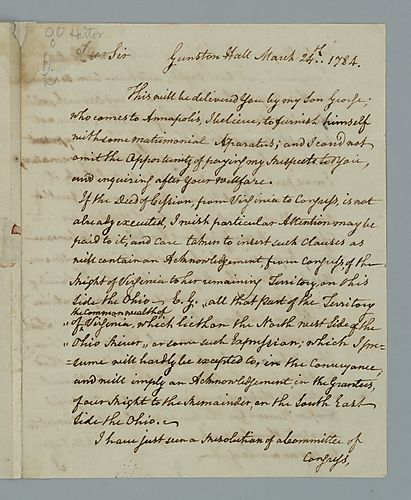 Dear Sir Gunston Hall March 24th. 1784.
This will be delivered You by my Son George;
who comes to Annapolis, I believe, to furnish himself
with some matrimonial Aparatus; and I cou'd not
omit the Opportunity of paying my Respects to You,
and inquiring after Your Wellfare.
If the Deed of Cession, from Virginia to Congress, is not
already executed, I wish particular Attention may be
paid to it, and Care taken to insert such Clauses as
will contain an Acknowledgement, from Congress, of the
Right of Virginia to her remaining Territory, on this
Side the Ohio. E. G. "all that Part of the Territory
the Commonwealth of
"of Virginia, which lieth on the North West Side of the
"Ohio River" or some such Expression; which I pre-
sume will hardly be excepted to, in the Conveyance,
and will imply an Acknowledgement, in the Grantees,
of our Right to the Remainder, on the South East
Side the Ohio.
I have just seen a Resolution of a Committee of
Congress,